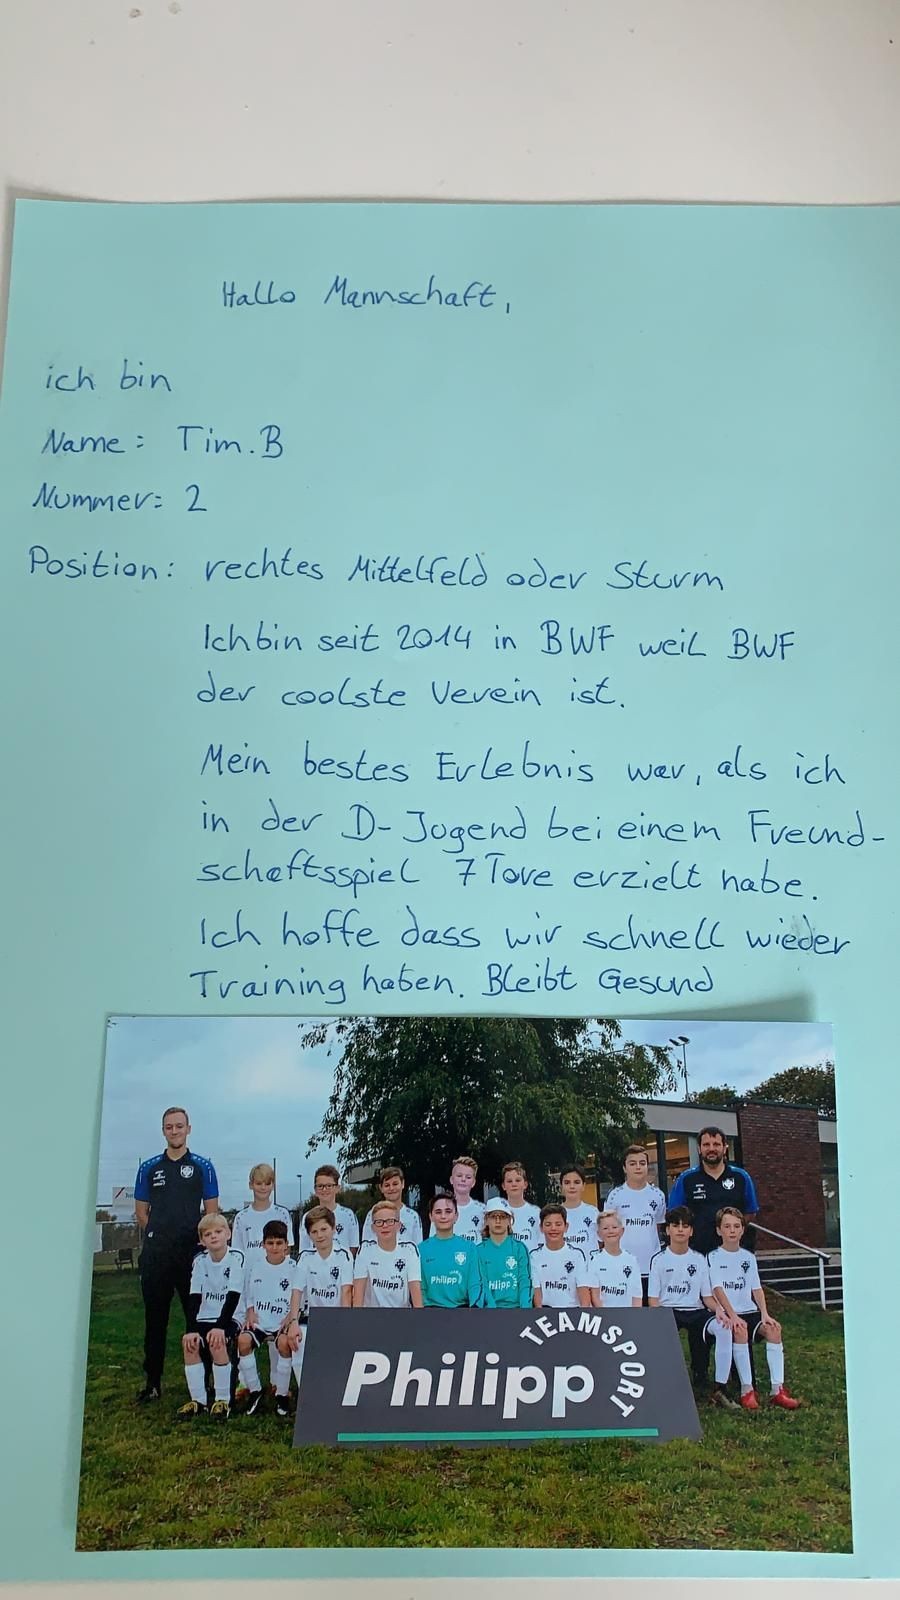 Hallo Mannschaft,
ich bin
Name: Tim.B
Nummer: 2
Position: rechtes Mittelfeld oder Sturm
Ich bin seit 2014 in BWF weil BWF
der coolste Verein ist.
Mein bestes Erlebnis war, als ich
in der D-Jugend bei einem Freund-
schaftsspiel 7 Tore erzielt habe.
Ich hoffe dass wir schnell wieder
Training haben. Bleibt Gesund
Philipp
TEAMSPORT